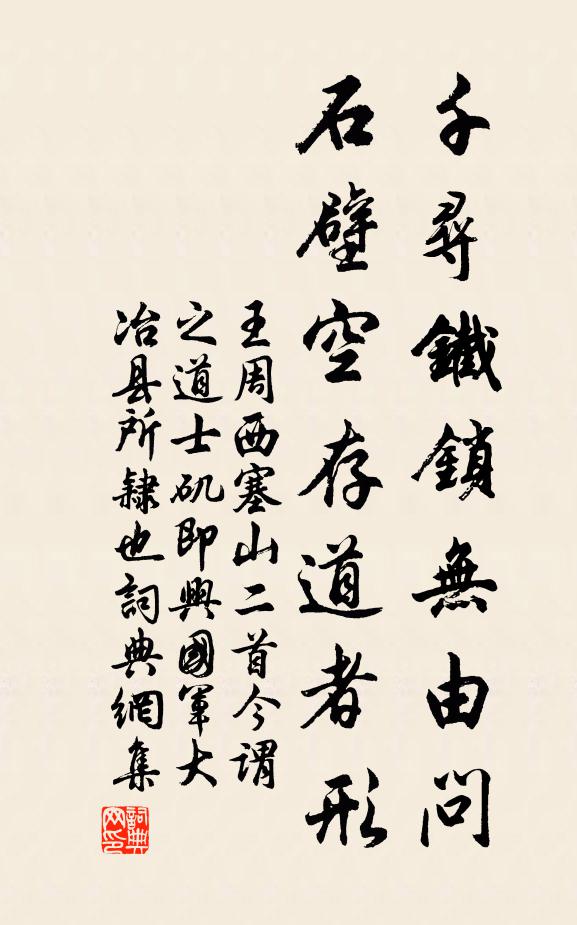 千尋鐵鎖無由問
石壁空存道者形
王周西塞山二首今謂
之道士矶即興國軍大
冶县所隸也詞典網集
詞典网印